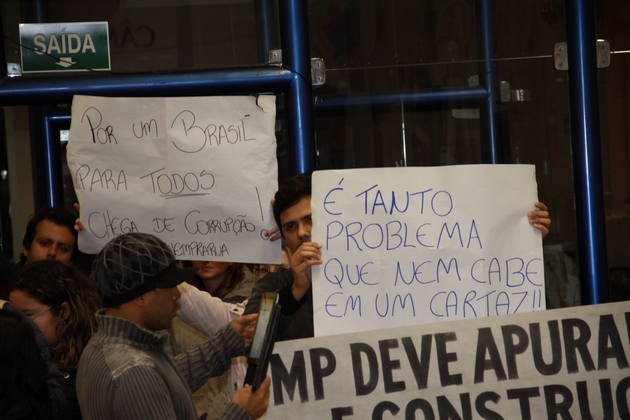 SAÍDA
POR UM BRASIL
PARA TODOS
CHEGA DE CORRUPÇÃO!
É TANTO
PROBLEMA
QUE NEM CABE
EM UM CARTAZ!!
MP DEVE APURAR
E CONSTRUÇ